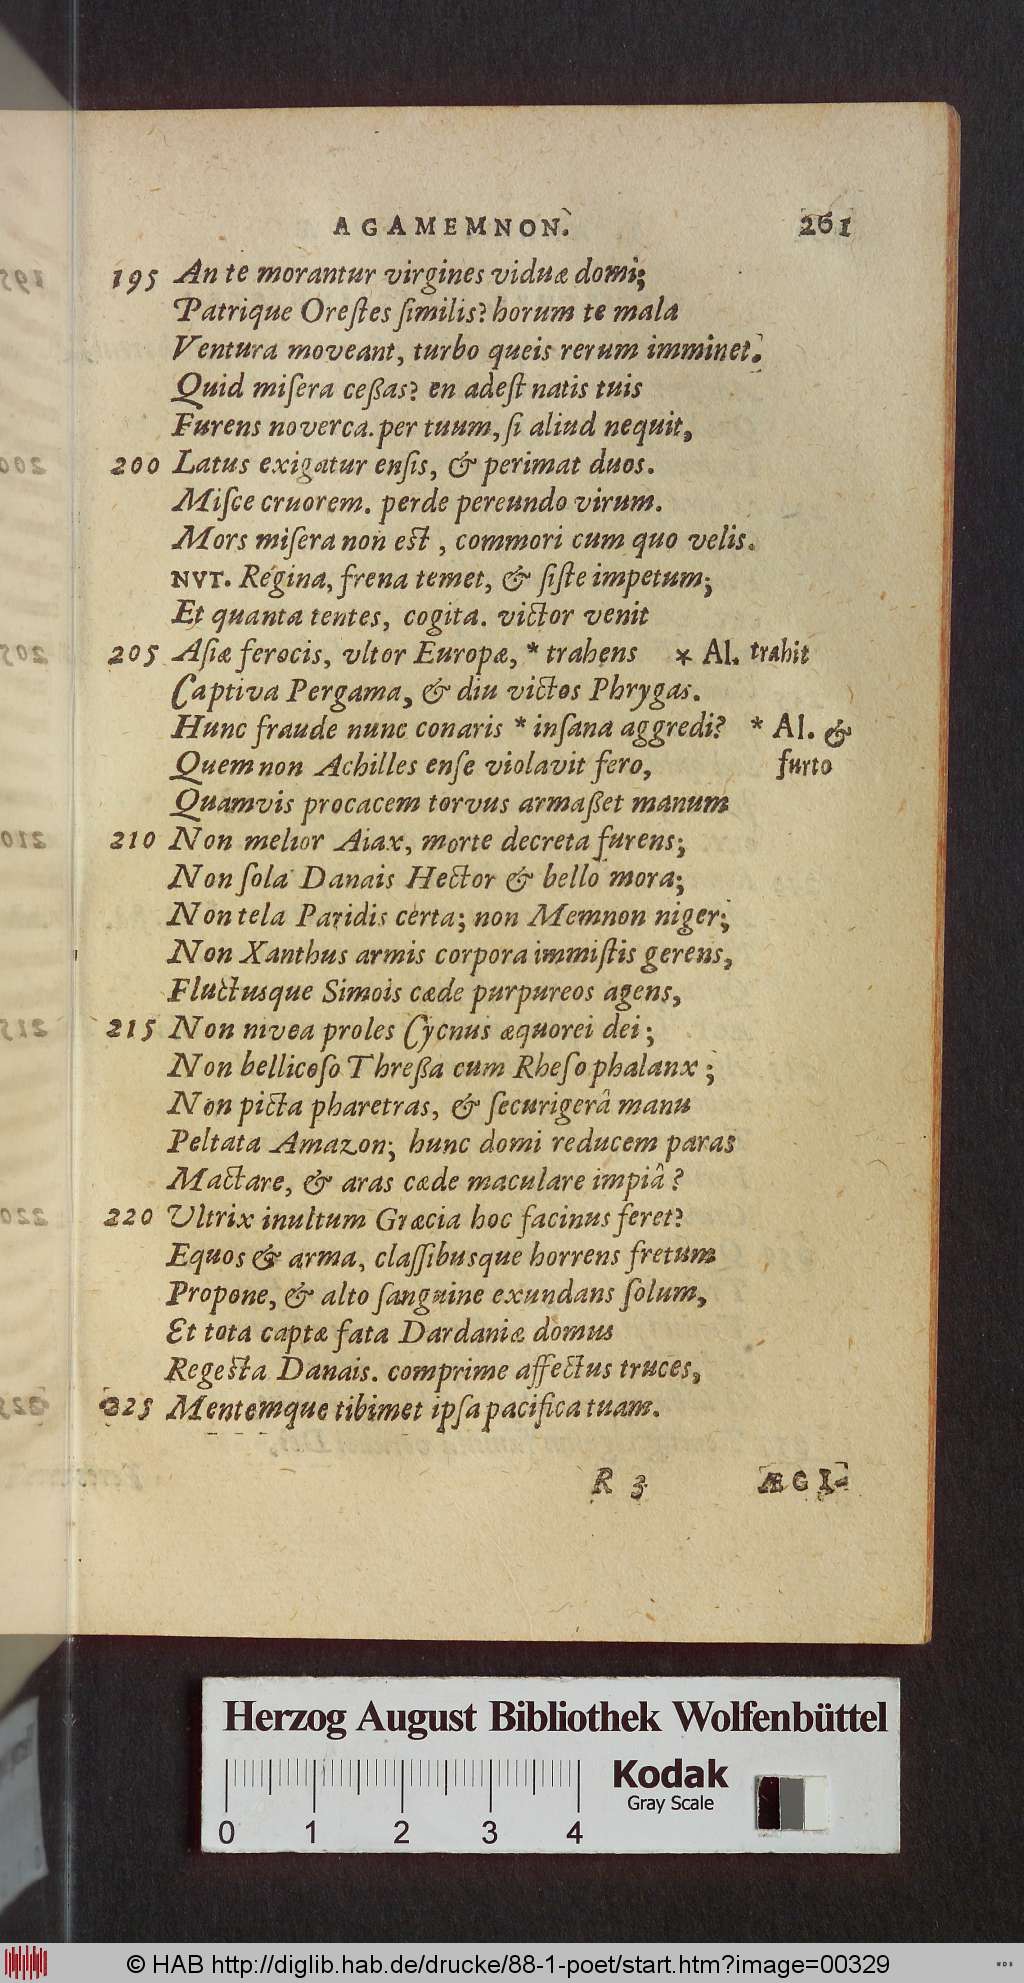 AGAMEMNON. 261
195 An te morantur virgines viduæ domi;
Patrique Orestes ſimilis? horum te mala
Ventura moveant, turbo queis rerum imminet.
Quid miſera ceßas? en adeſt natis tuis
Furens noverca. per tuum, ſi aliud nequit,
200 Latus exigatur enſis, & perimat duos.
Miſce cruorem. perde pereundo virum.
Mors miſera non est, commori cum quo velis.
NVT. Regina, frena temet, & ſiſte impetum;
Et quanta tentes, cogita. victor venit
205 Aſiæ ferocis, vltor Europæ, * trahens * Al. trahit
Captiva Pergama, & diu victos Phrygas.
Hunc fraude nunc conaris * inſana aggredi? * Al. &
Quem non Achilles enſe violavit fero, furto
Quamvis procacem torvus armaßet manum
210 Non melior Aiax, morte decreta furens;
Non ſola Danais Hector & bello mora;
Non tela Paridis certa; non Memnon niger;
Non Xanthus armis corpora immiſtis gerens,
Fluctusque Simois cæde purpureos agens,
215 Non nivea proles Cycnus æquorei dei;
Non bellicoſo Threßa cum Rheſo phalanx;
Non picta pharetras, & ſecurigerâ manu
Peltata Amazon; hunc domi reducem paras
Mactare, & aras cæde maculare impiâ?
220 Ultrix inultum Græcia hoc facinus feret?
Equos & arma, claſſibusque horrens fretum
Propone, & alto ſanguine exundans ſolum,
Et tota captæ fata Dardaniæ domus
Regesta Danais. comprime affectus truces,
225 Mentemque tibimet ipſa pacifica tuam.
R 3 ÆGI-
Herzog August Bibliothek Wolfenbüttel
Kodak
Gray Scale
0 1 2 3 4
© HAB http://diglib.hab.de/drucke/88-1-poet/start.htm?image=00329